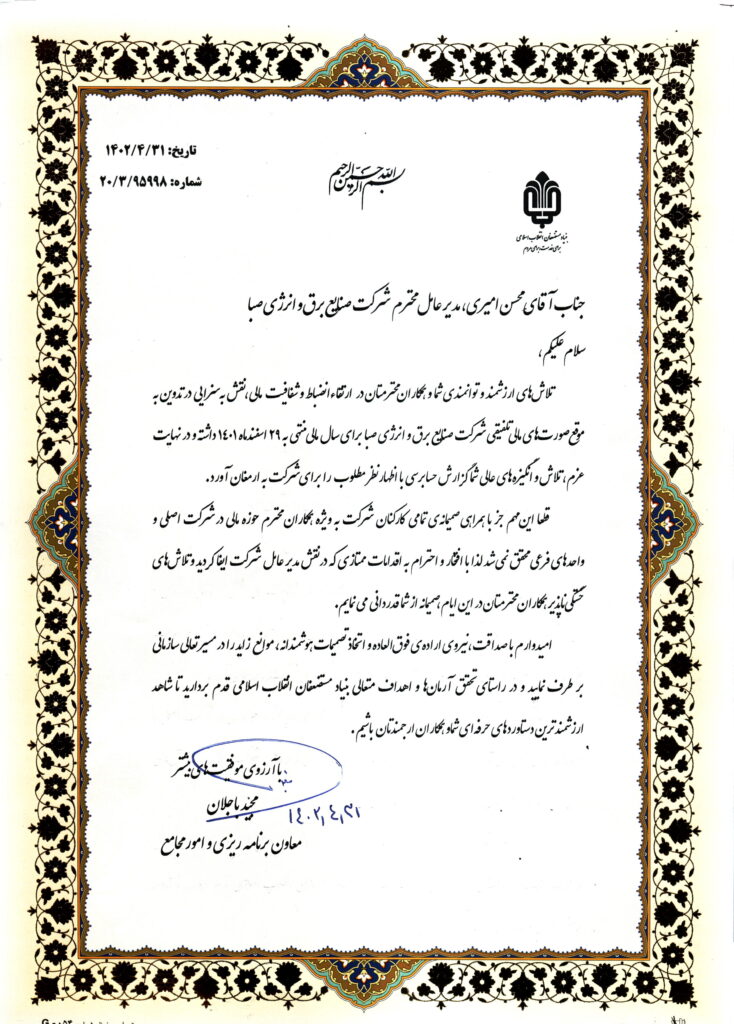 تاریخ: ۱۴۰۲/۴/۳۱
شماره: ۲۰/۳/۹۵۹۹۸
بسم الله الرحمن الرحیم
بنیاد مستضعفان انقلاب اسلامی
برای خدمت، برای مردم
جناب آقای محسن امیری، مدیر عامل محترم شرکت صنایع برق و انرژی صبا
سلام علیکم،
تلاش های ارزشمند و توانمندی شما و همکاران محترمتان در ارتقاء انضباط و شفافیت مالی، نقش به سزایی در تدوین به
موقع صورت های مالی تلفیقی شرکت صنایع برق و انرژی صبا برای سال مالی منتهی به ۲۹ اسفندماه ۱۴۰۱ داشته و در نهایت
عزم، تلاش و انگیزه های عالی شما گزارش حسابرسی با اظهار نظر مطلوب را برای شرکت به ارمغان آورد.
قطعا این مهم جز با همراهی صمیمانه ی تمامی کارکنان شرکت به ویژه همکاران محترم حوزه مالی در شرکت اصلی و
واحدهای فرعی محقق نمی شد لذا با افتخار و احترام به اقدامات ممتازی که در نقش مدیر عامل شرکت ایفا کردید و تلاش های
خستگی ناپذیر همکاران محترمتان در این ایام، صمیمانه از شما قدردانی می نمایم.
امیدوارم با صداقت، نیروی اراده ی فوق العاده و اتخاذ تصمیمات هوشمندانه، موانع زاید را در مسیر تعالی سازمانی
بر طرف نمایید و در راستای تحقق آرمان ها و اهداف متعالی بنیاد مستضعفان انقلاب اسلامی قدم بردارید تا شاهد
ارزشمندترین دستاوردهای حرفه ای شما و همکاران ارجمندتان باشیم.
با آرزوی موفقیت های بیشتر
مجید باجلان
۱۴۰۲,۴,۳۱
معاون برنامه ریزی و امور مجامع